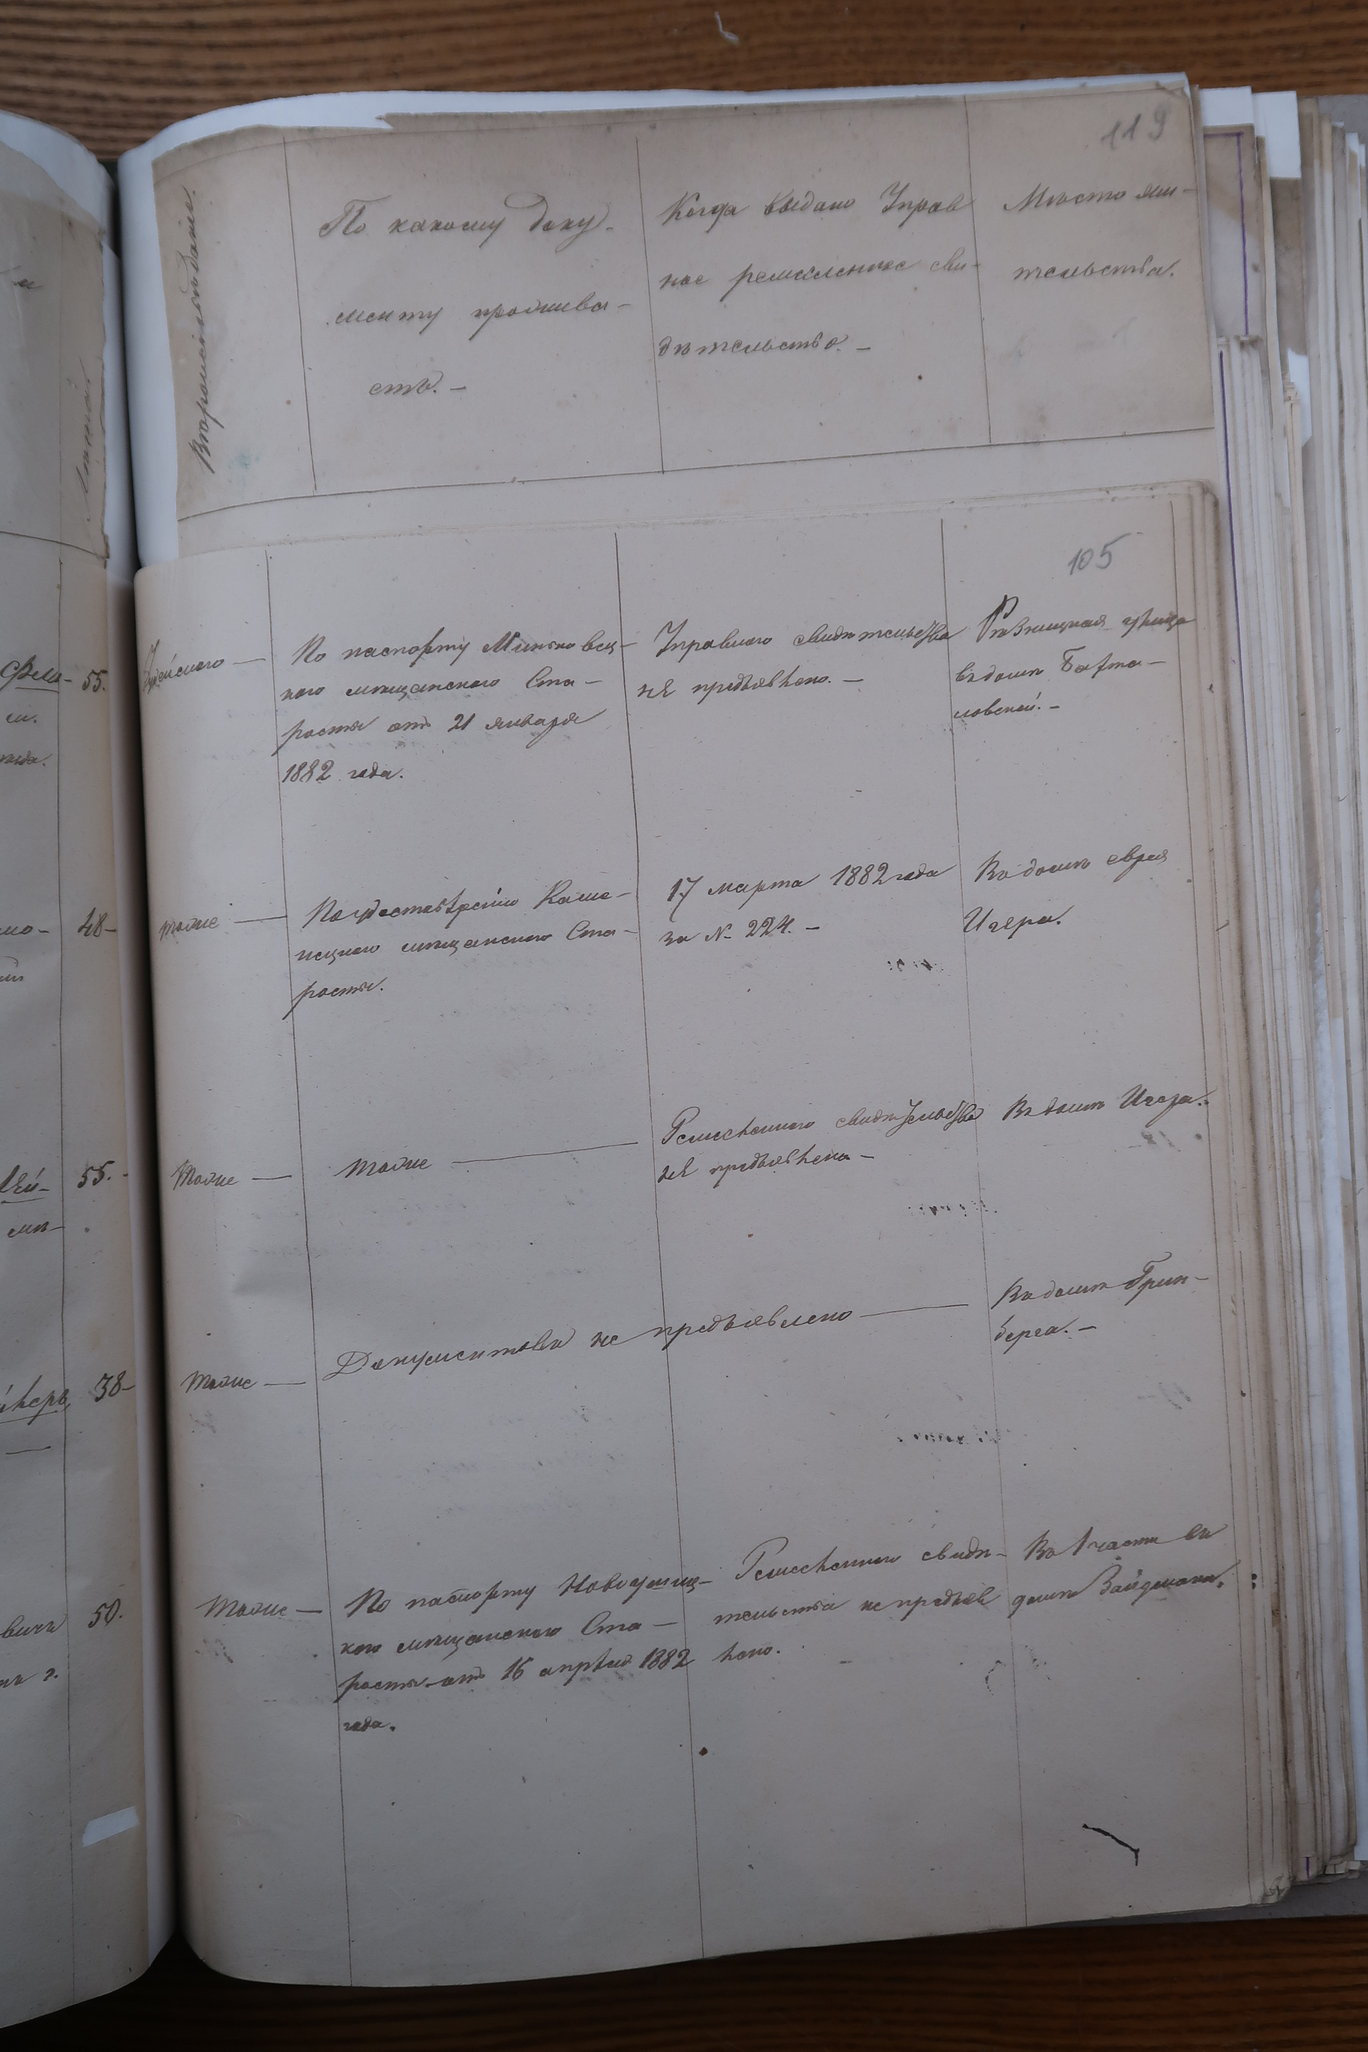 119
Вѣроисповѣданіе.
По какому доку-
менту прожива-
етъ. —
Когда выдано Управ
ное ремесленное сви-
дѣтельство. —
Мѣсто жи-
тельства.
Лѣта
105
55.
Іудейскаго —
По паспорту Миньковец-
каго мѣщанскаго Ста-
росты отъ 21 января
1882 года.
Управнаго свидѣтельства
не предъявлено. —
Рѣзницкая улица
въ домѣ
ловской. —
48-
тоже —
По удостовѣренію Каме-
нецкаго мѣщанскаго Ста-
росты.
17 марта 1882 года
за № 224. —
Въ домѣ еврея
Игера.
55.-
тоже —
тоже —
Ремесленнаго свидѣтельства
не предъявлено —
Въ домѣ Игера.
38-
тоже —
Документовъ не предъявлено —
Въ домѣ Грин-
берга. —
50.
тоже —
По паспорту Новоушиц-
каго мѣщанскаго Ста-
росты отъ 16 апрѣля 1882
года.
Ремесленнаго свидѣ-
тельства не предъяв
лено.
Въ 1 части въ
домѣ Зайдмана.